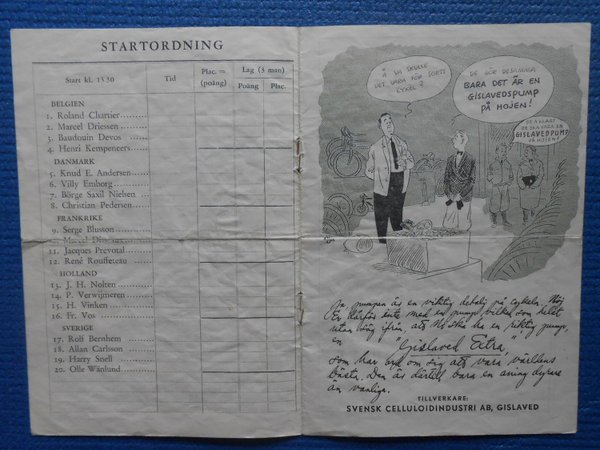 STARTORDNING
Start kl. 1530
Tid
Plac. = (poäng)
Lag (3 man)
Poäng
Plac.
BELGIEN
1. Roland Chartier
2. Marcel Driessen
3. Baudouin Devos
4. Henri Kempeneers
DANMARK
5. Knud E. Andersen
6. Villy Emborg
7. Börge Saxil Nielsen
8. Christian Pedersen
FRANKRIKE
9. Serge Blusson
11. Jacques Prevotal
12. René Rouffeteau
HOLLAND
13. J. H. Nolten
14. P. Verwijmeren
15. H. Vinken
16. Fr. Vos
SVERIGE
17. Rolf Bernhem
18. Allan Carlsson
19. Harry Snell
20. Olle Wänlund
Å VA SKULLE
DET VARA FÖR SORTS
CYKEL?
DE GÖR DESAMMA
BARA DET ÄR EN
GISLAVEDSPUMP
PÅ HOJEN!
DE Ä KLART
DE SKA VARA EN
GISLAVEDPUMP
PÅ HOJEN!
Ja pumpen är en viktig detalj på cykeln. Nöj
Er därför inte med en pump vilken som helst
utan säg ifrån att Ni ska ha en riktig pump,
en "Gislaved Extra"
som har ord om sig att vara världens
bästa. Den är därtill bara en aning dyrare
än vanliga.
TILLVERKARE:
SVENSK CELLULOIDINDUSTRI AB, GISLAVED